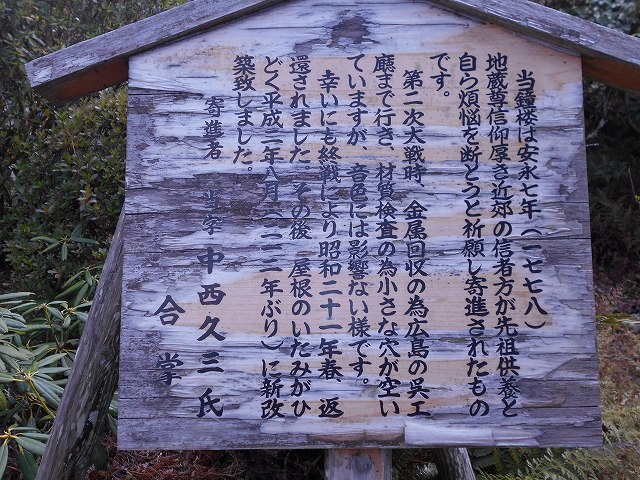 当鐘楼は安永七年(一七七八)
地蔵尊信仰厚き近郊の信者方が先祖供養と
自ら煩悩を断とうと祈願し寄進されたもの
です。
第二次大戦時、金属回収の為広島の呉工
廠まで行き、材質検査の為小さな穴が空い
ていますが、音色には影響ない様です。
幸いにも終戦により昭和二十一年春、返
還されました。その後、屋根のいたみがひ
どく平成二年八月(二一二年ぶり)に新改
築致しました。
寄進者 当字 中西久三氏
合掌